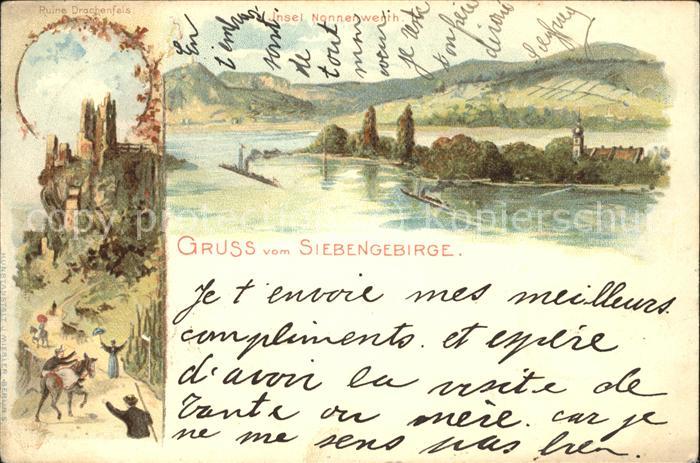 Ruine Drachenfels
Insel Nonnenwerth.
En
t'embras
sant
de
tout
mon
coeur
je reste
ton frère
Siegfried
GRUSS vom SIEBENGEBIRGE.
Je t'envoie mes meilleurs
compliments. et espère
d'avoir la visite de
Tante ou mère. car je
ne me sens pas bien.
KUNSTANSTALT J. MIESLER, BERLIN S.
copy protection / Kopierschutz